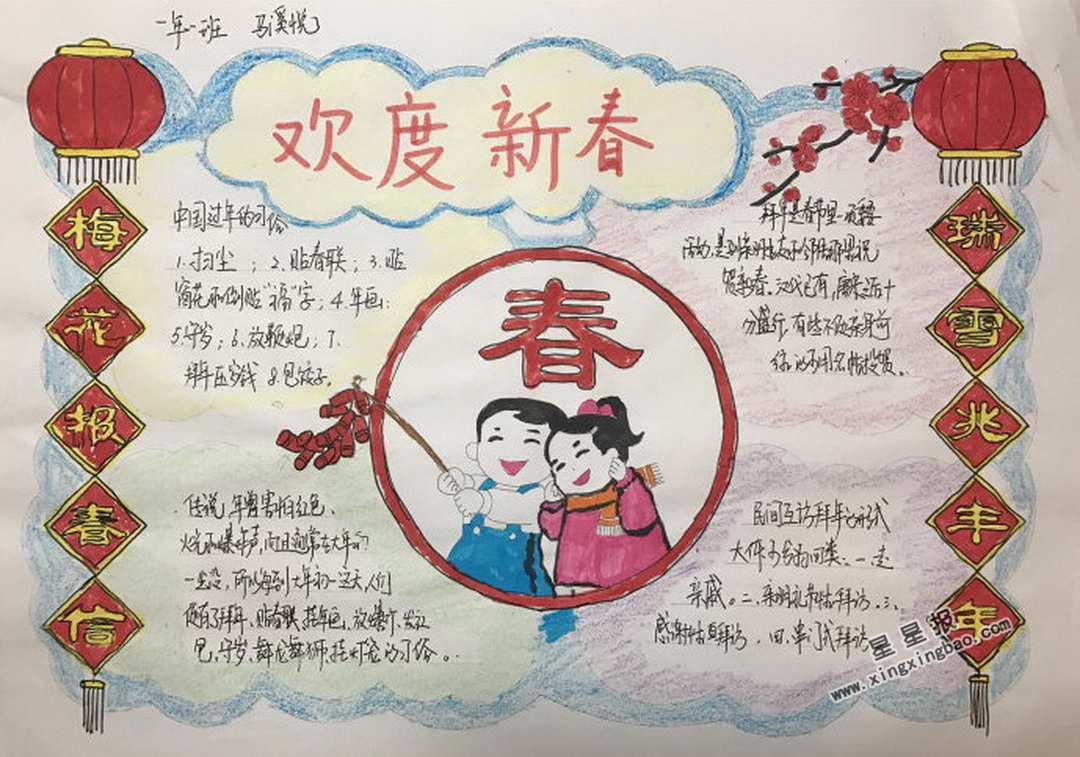 一年一班 马溪悦
欢度新春
梅花报春信
瑞雪兆丰年
中国过年的习俗
1.扫尘；2.贴春联；3.贴
窗花和倒贴“福”字；4.年画；
5.守岁；6.放鞭炮；7.
拜年压岁钱 8.包饺子。
拜年是春节里一项
活动，是到亲朋好友和邻居那里祝
贺新春。汉代已有，唐宋之后十
分盛行，有些不必亲身前
往，的用名帖投贺。
春
传说年兽害怕红色、
火光和爆竹声，而且通常在大年初
一出没，所以每到大年初一这天，人们
便有了拜年、贴春联、挂年画、放爆竹、发红
包、守岁、舞龙舞狮、挂灯笼的习俗。
民间互访拜年的形式
大体可分为四类：一走
亲戚。二、亲朋礼节性拜访。三、
感谢性拜访，四、串门式拜访
星星报
www.xingxingbao.com